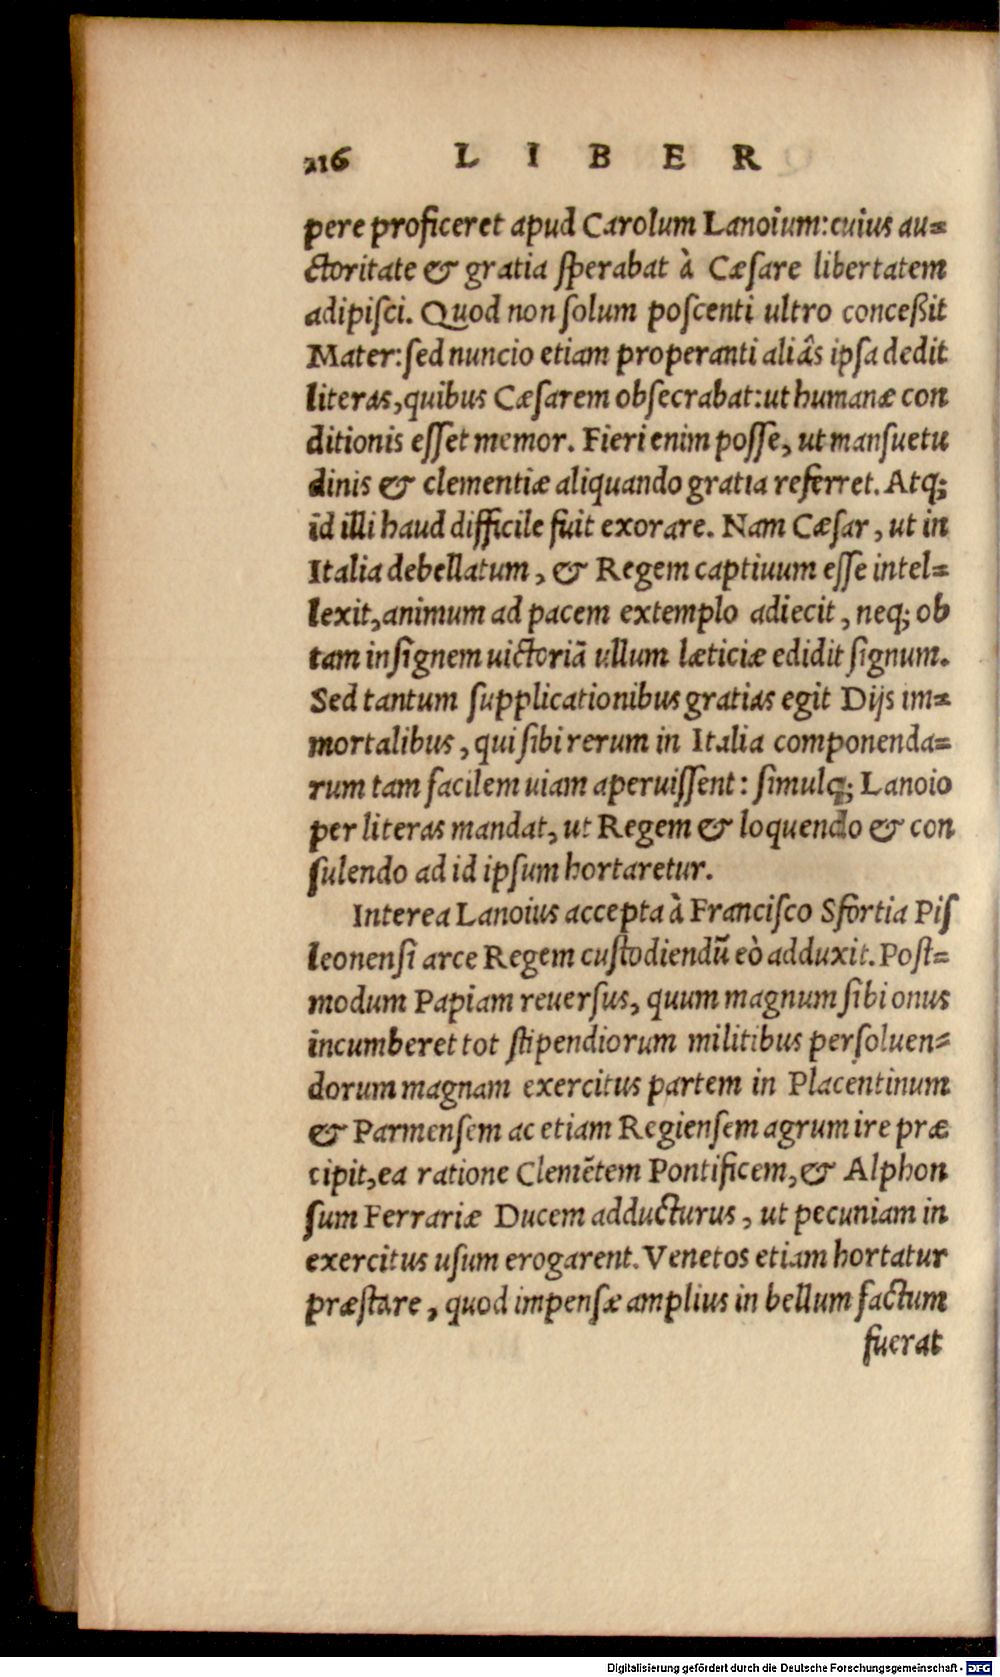 216 LIBER
pere proficeret apud Carolum Lanoium: cuius au=
ctoritate & gratia ſperabat à Cæſare libertatem
adipiſci. Quod non ſolum poſcenti ultro conceßit
Mater: ſed nuncio etiam properanti aliâs ipſa dedit
literas, quibus Cæſarem obſecrabat: ut humanæ con
ditionis eſſet memor. Fieri enim poſſe, ut manſuetu
dinis & clementiæ aliquando gratia referret. Atq;
id illi haud difficile fuit exorare. Nam Cæſar, ut in
Italia debellatum, & Regem captiuum eſſe intel=
lexit, animum ad pacem extemplo adiecit, neq; ob
tam inſignem uictoriā ullum læticiæ edidit ſignum.
Sed tantum ſupplicationibus gratias egit Dijs im=
mortalibus, qui ſibi rerum in Italia componenda=
rum tam facilem uiam aperuiſſent: ſimulq; Lanoio
per literas mandat, ut Regem & loquendo & con
ſulendo ad id ipſum hortaretur.
Interea Lanoius accepta à Franciſco Sfortia Piſ
leonenſi arce Regem cuſtodiendū eò adduxit. Poſt=
modum Papiam reuerſus, quum magnum ſibi onus
incumberet tot ſtipendiorum militibus perſoluen=
dorum magnam exercitus partem in Placentinum
& Parmenſem ac etiam Regienſem agrum ire præ
cipit, ea ratione Clemētem Pontificem, & Alphon
ſum Ferrariæ Ducem adducturus, ut pecuniam in
exercitus uſum erogarent. Venetos etiam hortatur
præſtare, quod impenſæ amplius in bellum factum
fuerat
Digitalisierung gefördert durch die Deutsche Forschungsgemeinschaft - DFG